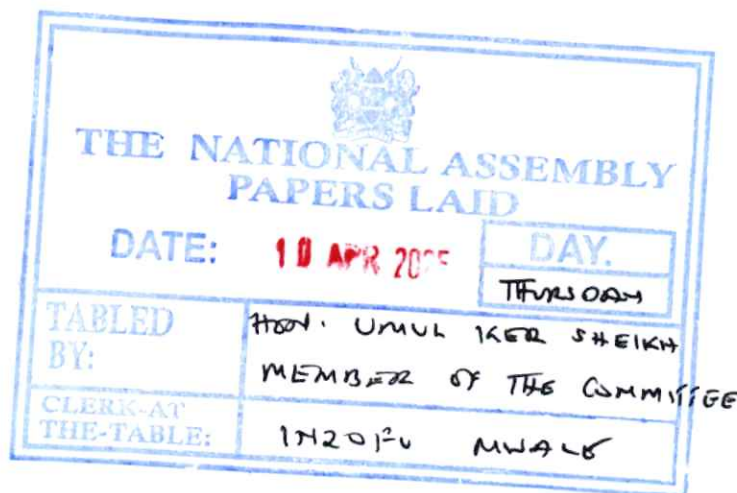 THE NATIONAL ASSEMBLY
PAPERS LAID
DATE: 10 APR 2025
DAY.
THURSDAY
TABLED BY:
HON. UMUL KER SHEIKH
MEMBER OF THE COMMITTEE
CLERK-AT THE-TABLE:
INZOFU MWALE